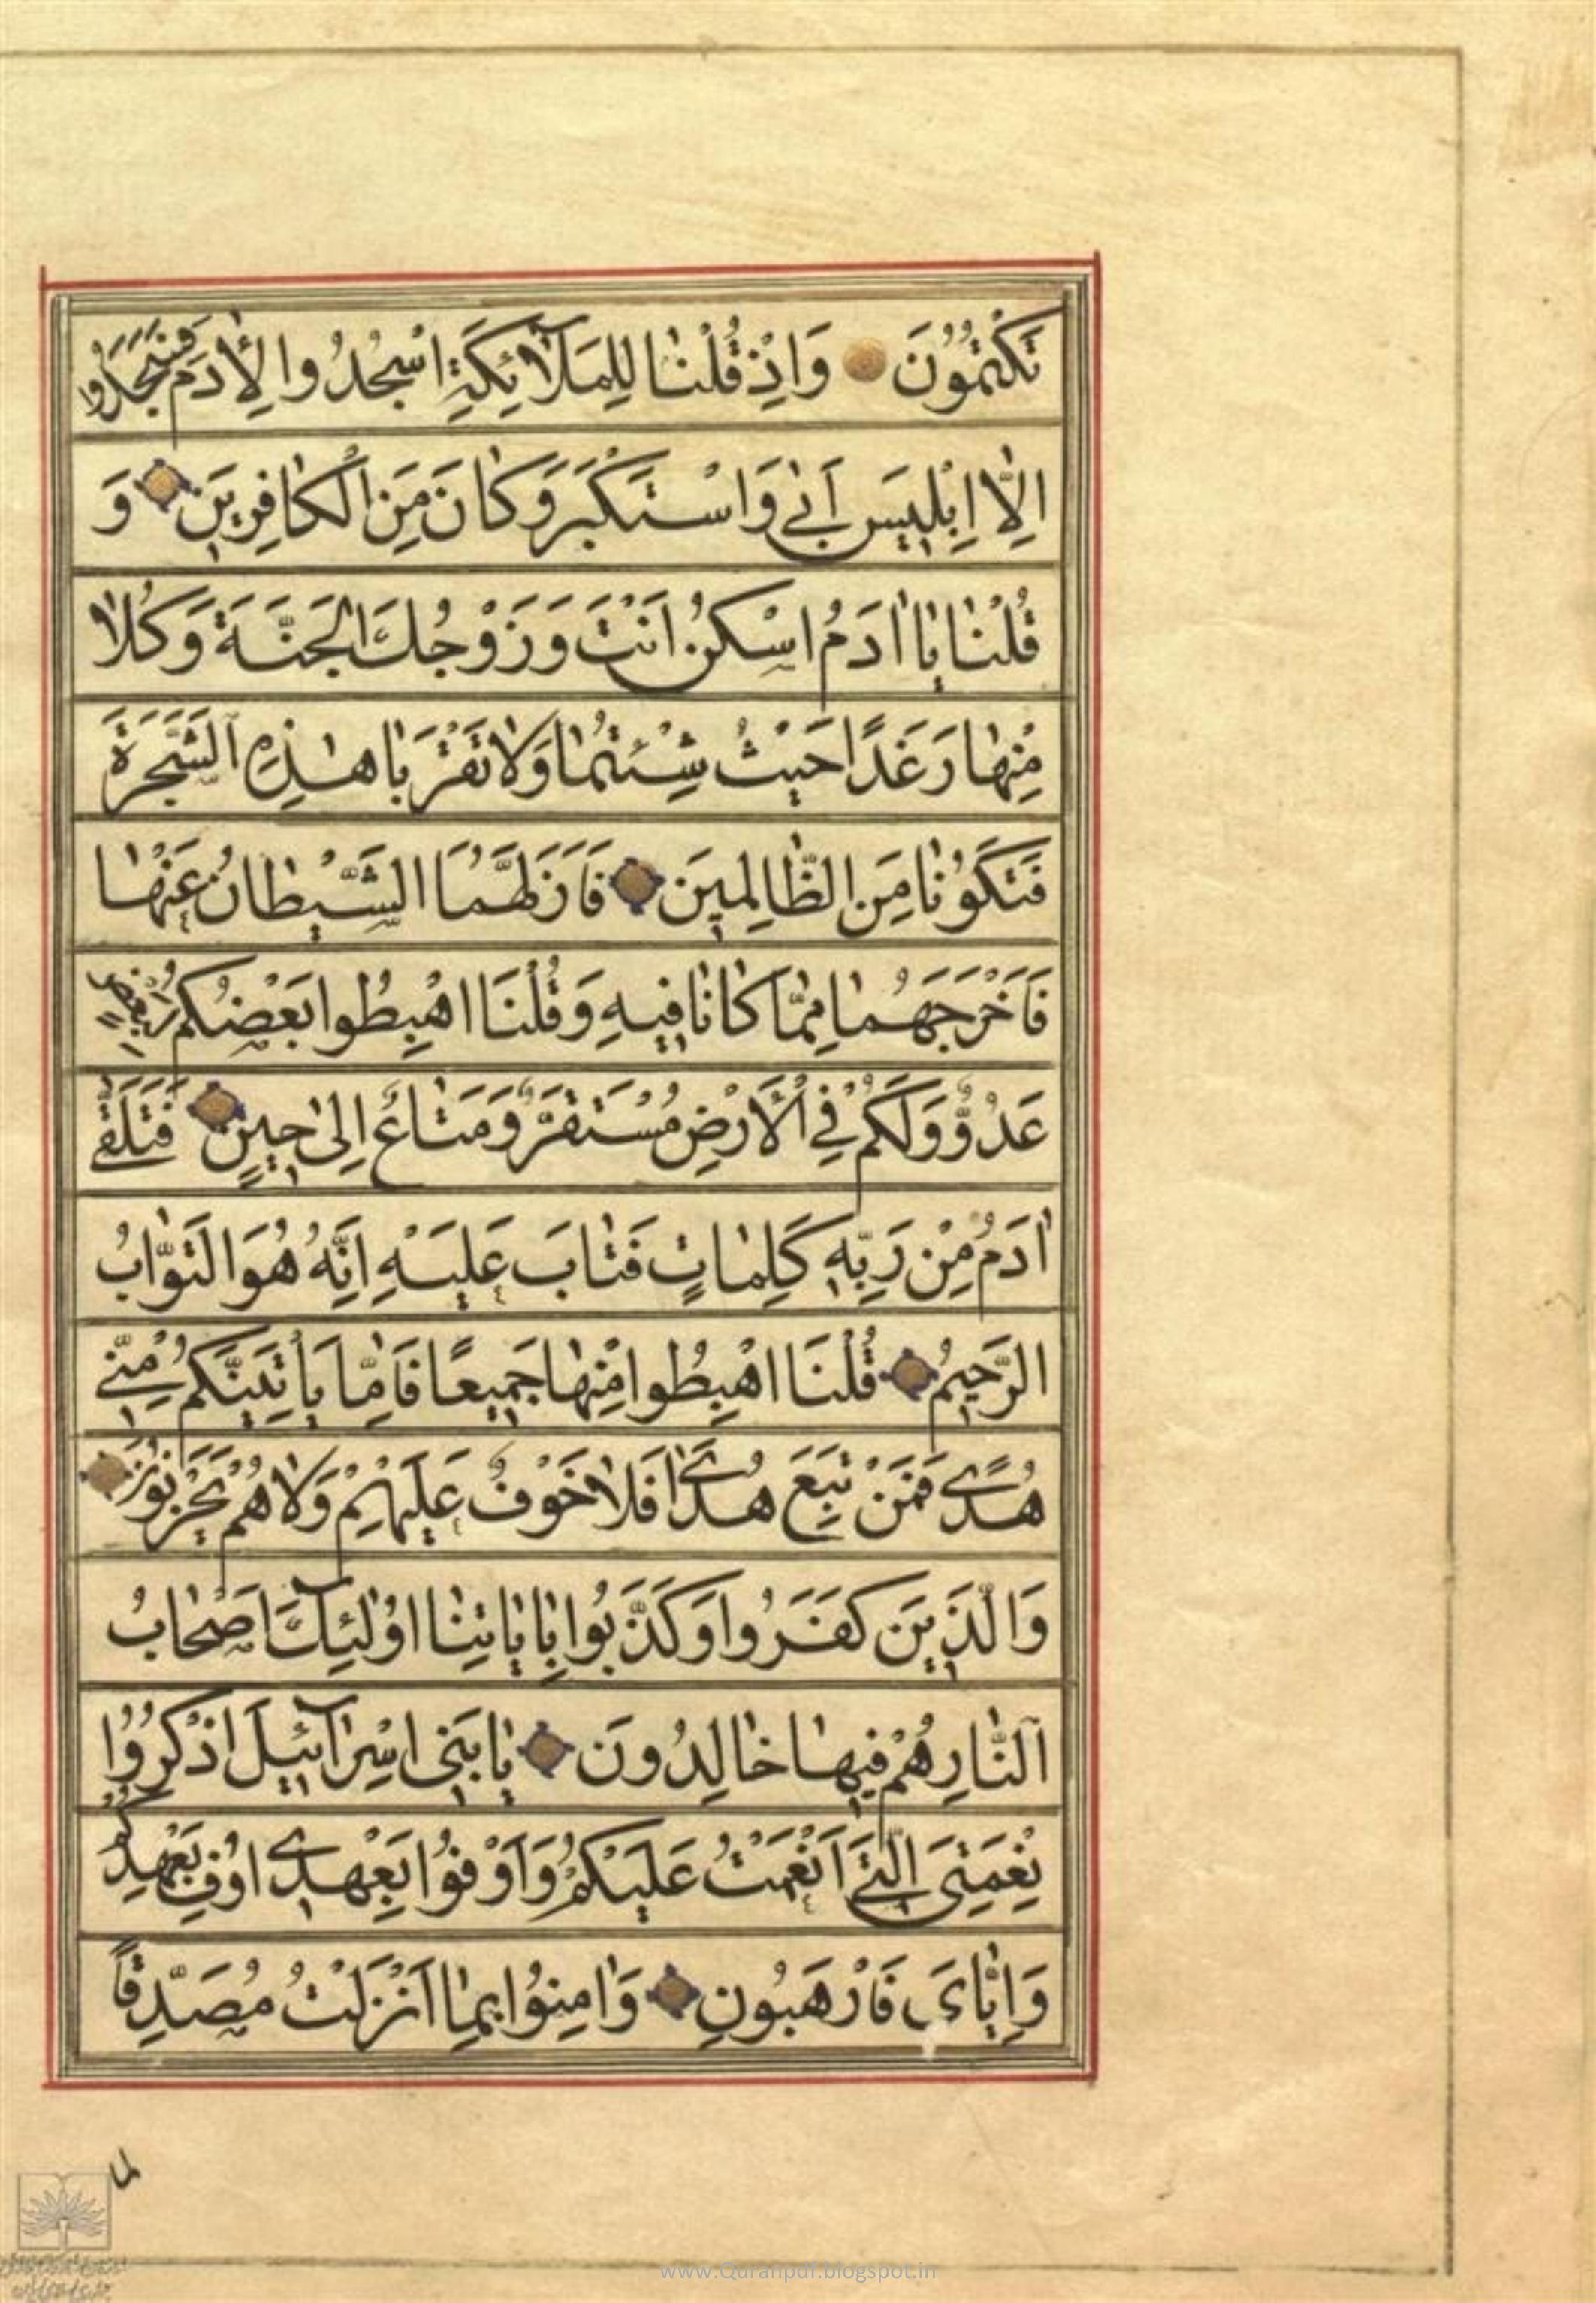 تَكْتُمُونَ وَاِذْ قُلْنٰا لِلْمَلٰٓائِكَةِ اسْجُدُوا لِاٰدَمَ فَسَجَدُوا
اِلّٰا اِبْلِيسَ اَبٰى وَاسْتَكْبَرَ وَكٰانَ مِنَ الْكٰافِرِينَ وَ
قُلْنٰا يٰا اٰدَمُ اسْكُنْ اَنْتَ وَزَوْجُكَ الْجَنَّةَ وَكُلٰا
مِنْهٰا رَغَدًا حَيْثُ شِئْتُمٰا وَلٰا تَقْرَبٰا هٰذِهِ الشَّجَرَةَ
فَتَكُونٰا مِنَ الظّٰالِمِينَ فَاَزَلَّهُمَا الشَّيْطٰانُ عَنْهٰا
فَاَخْرَجَهُمٰا مِمّٰا كٰانٰا فِيهِ وَقُلْنَا اهْبِطُوا بَعْضُكُمْ لِبَعْضٍ
عَدُوٌّ وَلَكُمْ فِي الْاَرْضِ مُسْتَقَرٌّ وَمَتٰاعٌ اِلٰى حِينٍ فَتَلَقّٰى
اٰدَمُ مِنْ رَبِّهِ كَلِمٰاتٍ فَتٰابَ عَلَيْهِ اِنَّهُ هُوَ التَّوّٰابُ
الرَّحِيمُ قُلْنَا اهْبِطُوا مِنْهٰا جَمِيعًا فَاِمّٰا يَاْتِيَنَّكُمْ مِنِّي
هُدًى فَمَنْ تَبِعَ هُدٰاىَ فَلٰا خَوْفٌ عَلَيْهِمْ وَلٰا هُمْ يَحْزَنُونَ
وَالَّذِينَ كَفَرُوا وَكَذَّبُوا بِاٰيٰاتِنٰا اُولٰٓئِكَ اَصْحٰابُ
النّٰارِ هُمْ فِيهٰا خٰالِدُونَ يٰا بَنِي اِسْرٰٓائِيلَ اذْكُرُوا
نِعْمَتِيَ الَّتِي اَنْعَمْتُ عَلَيْكُمْ وَاَوْفُوا بِعَهْدِي اُوفِ بِعَهْدِكُمْ
وَاِيّٰاىَ فَارْهَبُونِ وَاٰمِنُوا بِمٰا اَنْزَلْتُ مُصَدِّقًا
www.Quranpdf.blogspot.in